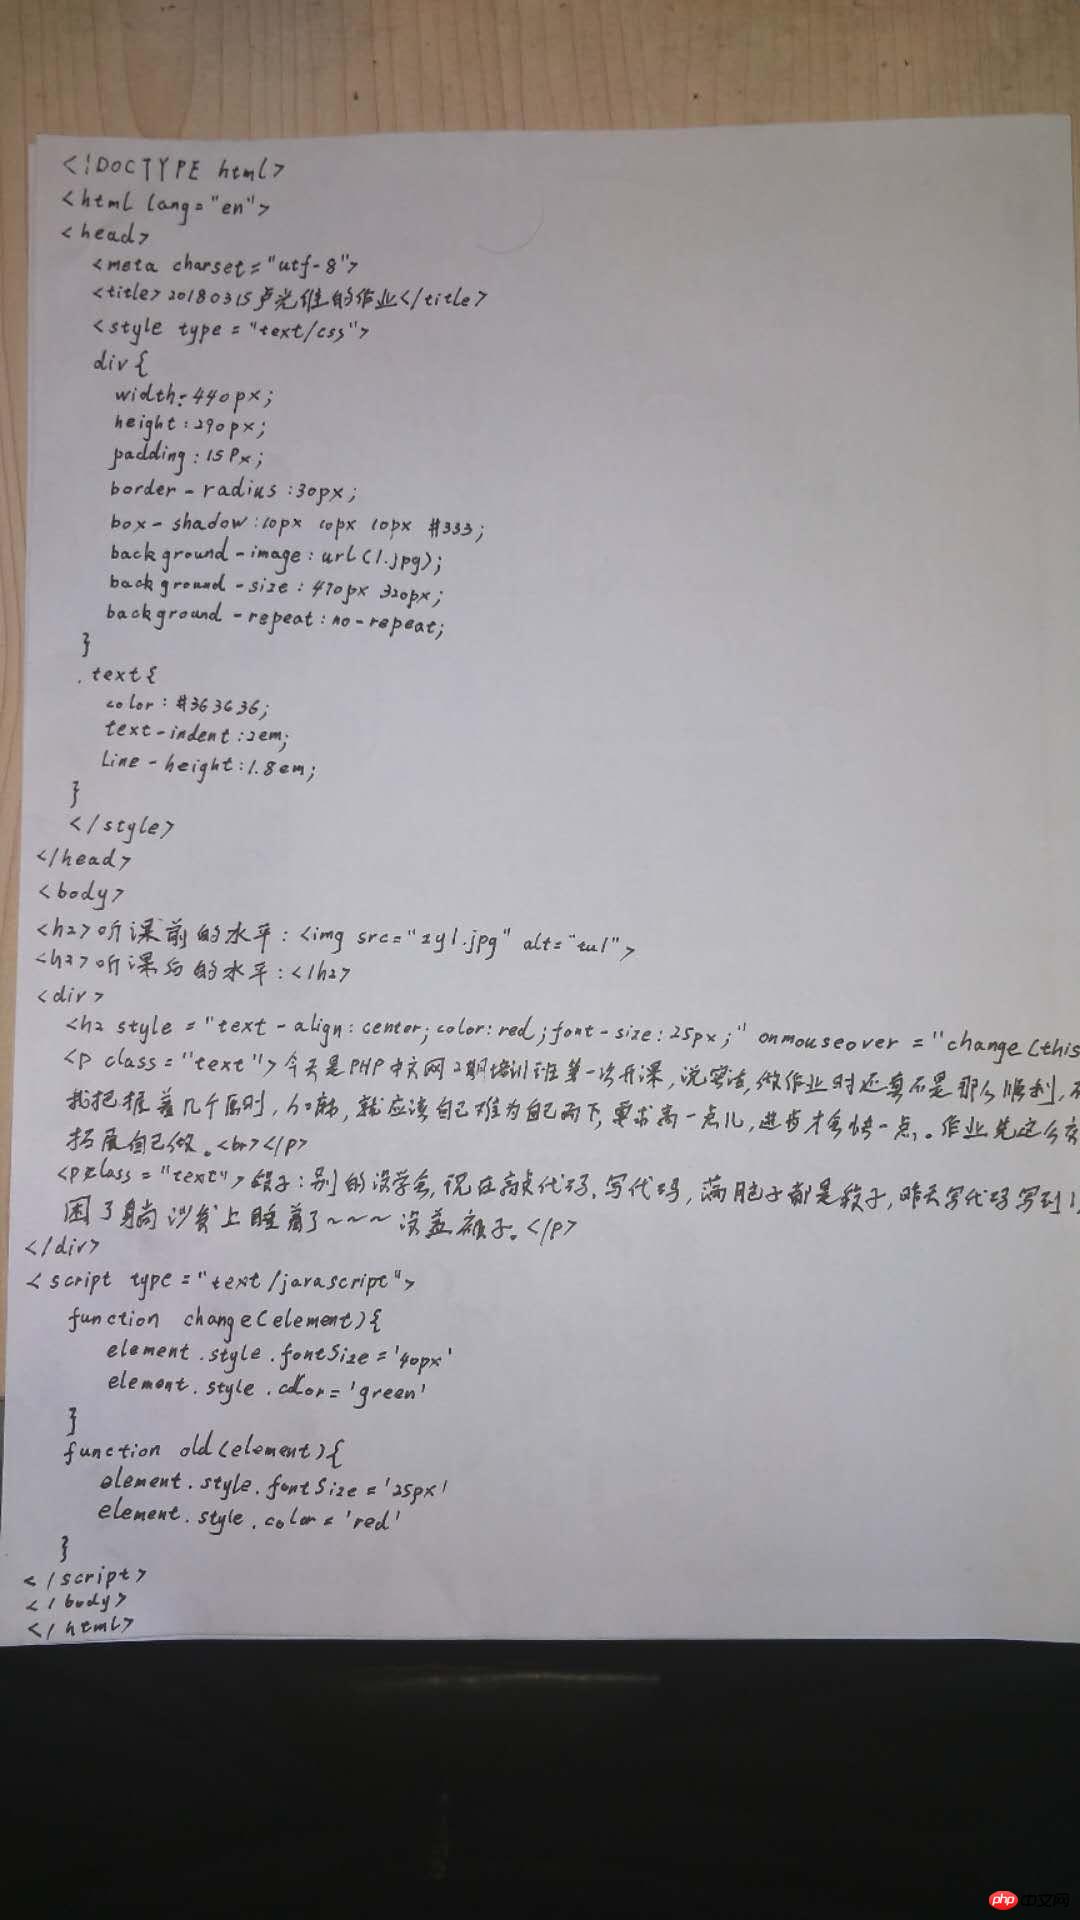 <!DOCTYPE html>
<html lang="en">
<head>
<meta charset="utf-8">
<title>20180315卢光维的作业</title>
<style type="text/css">
div{
width:440px;
height:290px;
padding:15Px;
border-radius:30px;
box-shadow:10px 10px 10px #333;
background-image:url(1.jpg);
background-size:470px 320px;
background-repeat:no-repeat;
}
.text{
color:#363636;
text-indent:2em;
Line-height:1.8em;
}
</style>
</head>
<body>
<h2>听课前的水平:<img src="zy1.jpg" alt="tu1">
<h2>听课后的水平:</h2>
<div>
<h2 style="text-align:center;color:red;font-size:25px;" onmouseover="change(this
<p class="text">今天是PHP中文网2期培训班第一次开课,说实话,做作业时还真不是那么顺利,不
我把握着几个原则,就应该自己难为自己两下,要求高一点儿,进步才会快一点。作业先这么交
拓展自己做。<br></p>
<p class="text">段子:别的没学会,现在敲代码、写代码,满脑子都是段子,昨天写代码写到1
困了躺沙发上睡着了~~~没盖被子。</p>
</div>
<script type="text/javascript">
function change(element){
element.style.fontSize='40px'
element.style.color='green'
}
function old(element){
element.style.fontSize='25px'
element.style.color='red'
}
</script>
</body>
</html>
php中文网